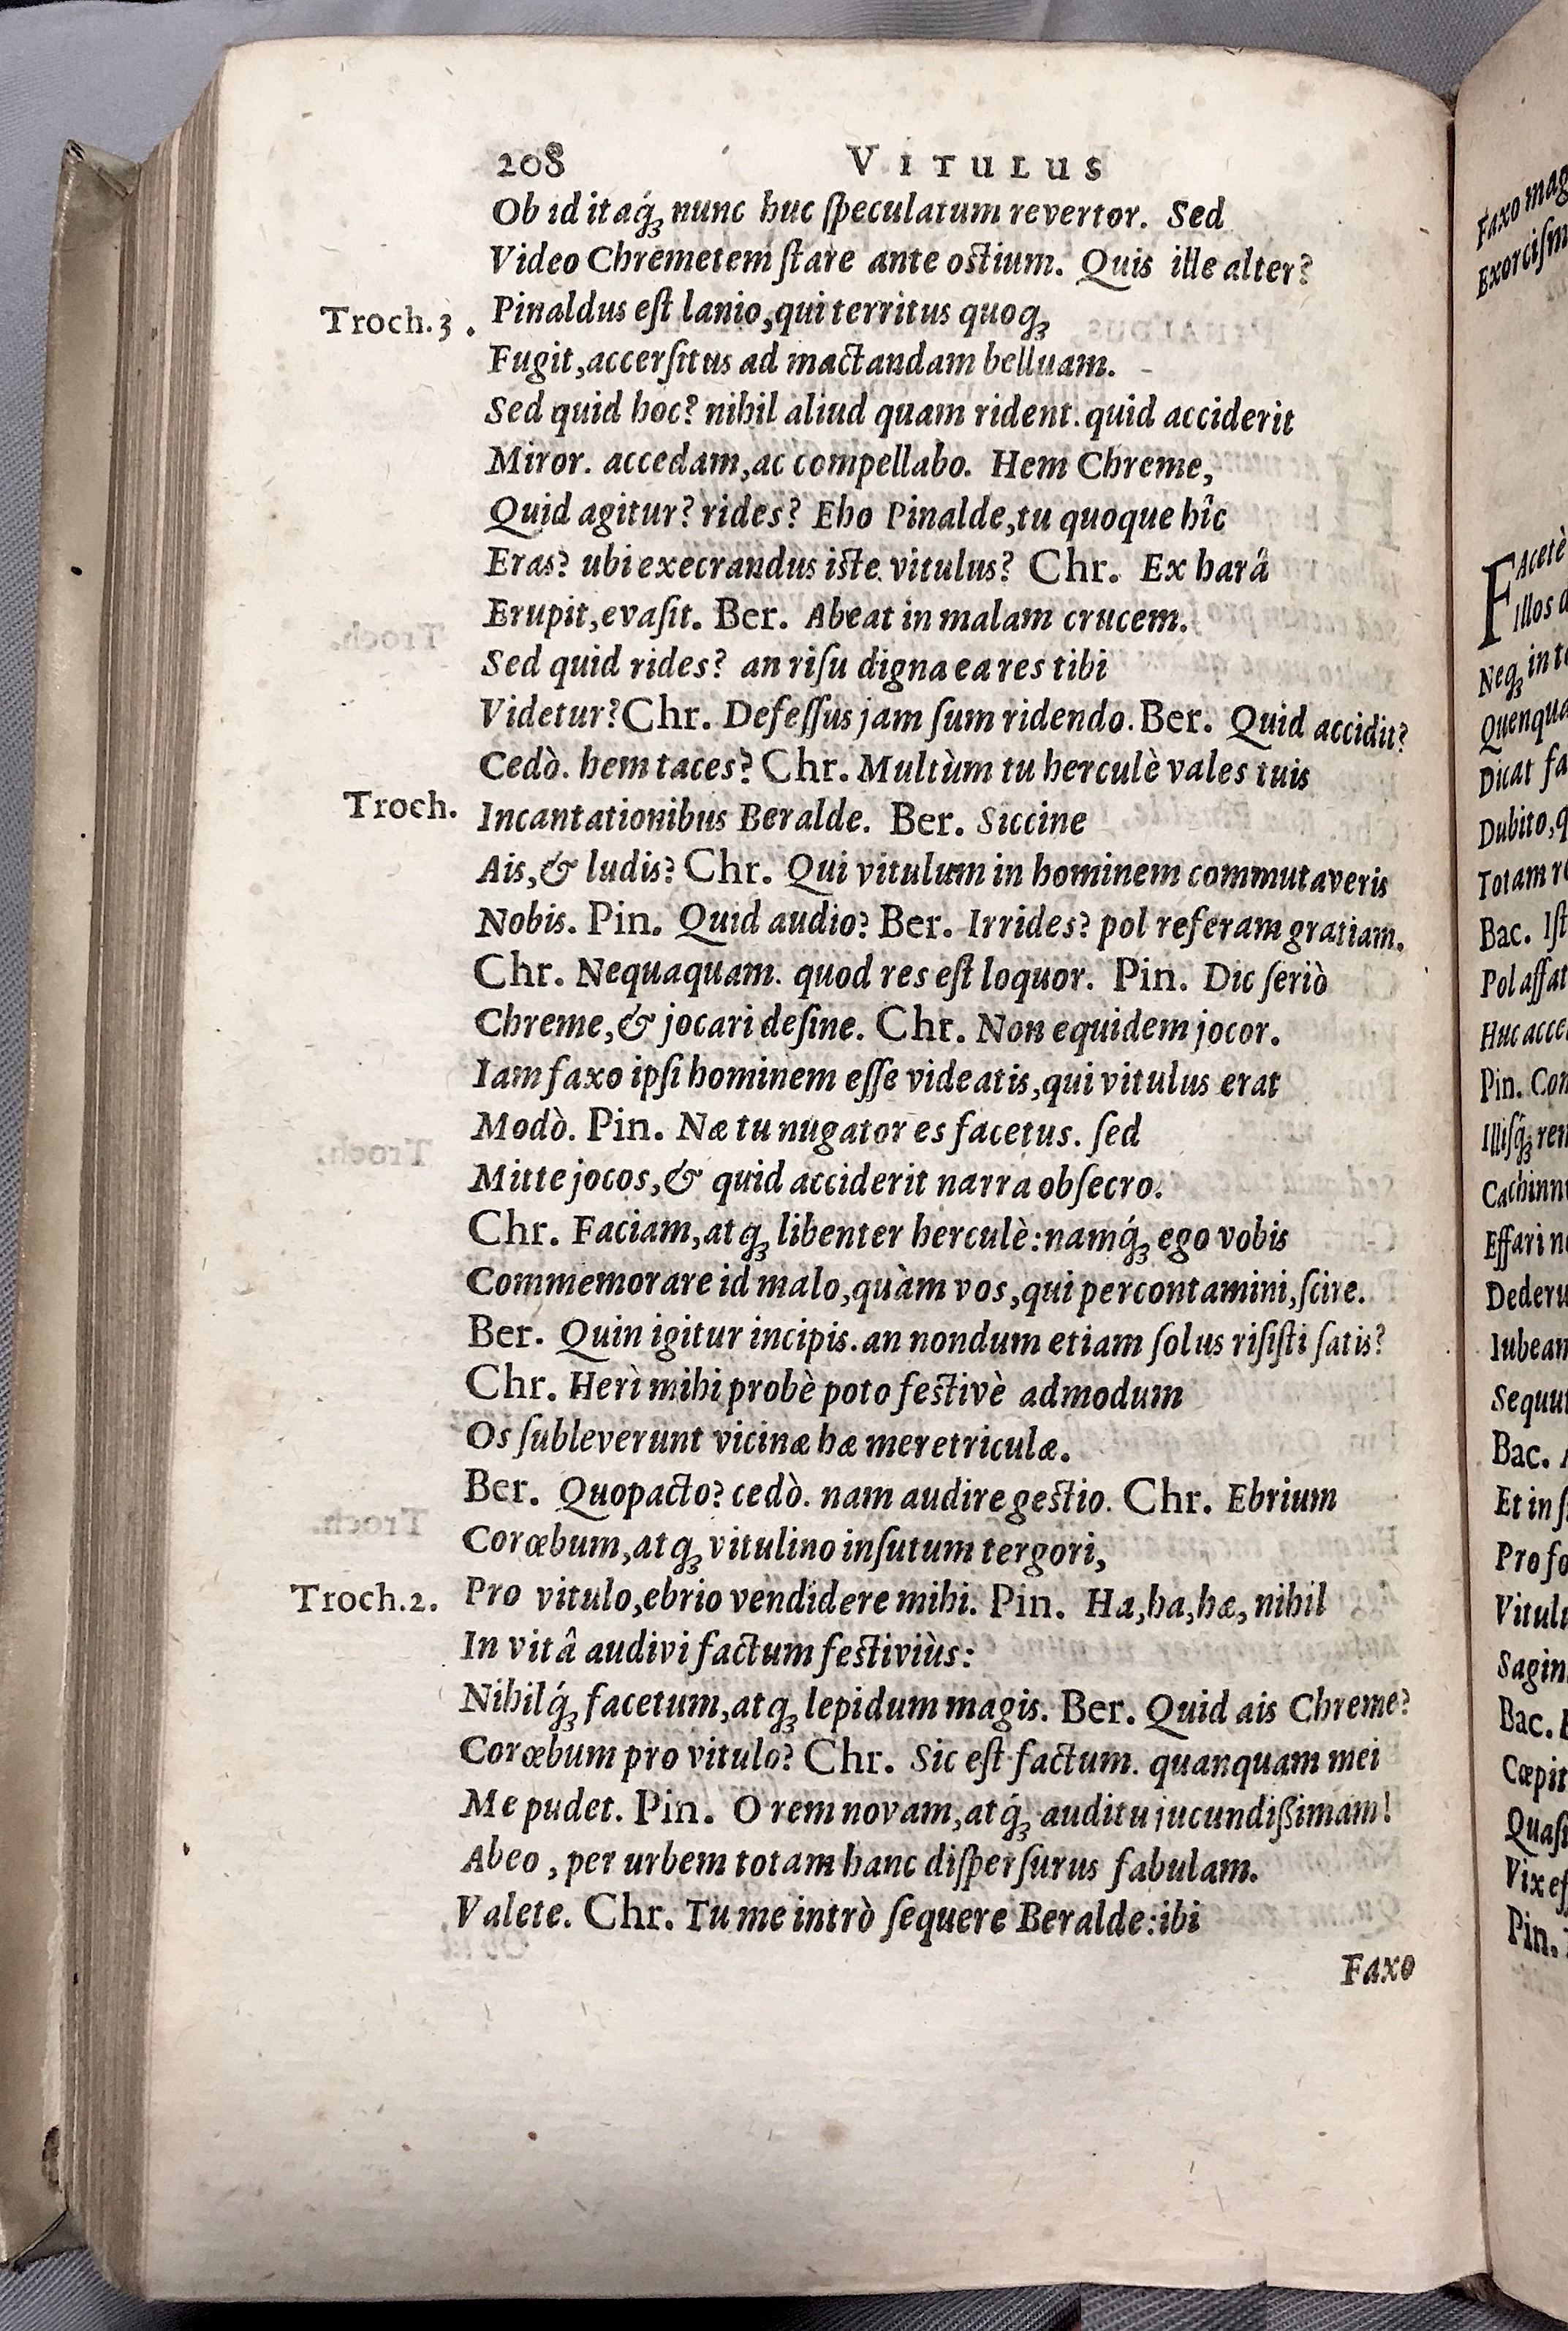 208 VITULUS
Ob id itaq́ꝫ nunc huc ſpeculatum revertor. Sed
Video Chremetem ſtare ante oſtium. Quis ille alter?
Troch. 3. Pinaldus eſt lanio, qui territus quoqꝫ
Fugit, accerſitus ad mactandam belluam.
Sed quid hoc? nihil aliud quam rident. quid acciderit
Miror. accedam, ac compellabo. Hem Chreme,
Quid agitur? rides? Eho Pinalde, tu quoque hîc
Eras? ubi execrandus iſte vitulus? Chr. Ex harâ
Erupit, evaſit. Ber. Abeat in malam crucem.
Sed quid rides? an riſu digna ea res tibi
Videtur? Chr. Defeſſus jam ſum ridendo. Ber. Quid accidit?
Cedò. hem taces? Chr. Multùm tu herculè vales tuis
Troch. Incantationibus Beralde. Ber. Siccine
Ais, & ludis? Chr. Qui vitulum in hominem commutaveris
Nobis. Pin. Quid audio? Ber. Irrides? pol referam gratiam.
Chr. Nequaquam. quod res eſt loquor. Pin. Dic ſeriò
Chreme, & jocari deſine. Chr. Non equidem jocor.
Iam faxo ipſi hominem eſſe videatis, qui vitulus erat
Modò. Pin. Næ tu nugator es facetus. ſed
Mitte jocos, & quid acciderit narra obſecro.
Chr. Faciam, atqꝫ libenter herculè: namq́ꝫ ego vobis
Commemorare id malo, quàm vos, qui percontamini, ſcire.
Ber. Quin igitur incipis. an nondum etiam ſolus riſiſti ſatis?
Chr. Heri mihi probè poto feſtivè admodum
Os ſubleverunt vicinæ hæ meretriculæ.
Ber. Quo pacto? cedò. nam audire geſtio. Chr. Ebrium
Corœbum, atqꝫ vitulino inſutum tergori,
Troch. 2. Pro vitulo, ebrio vendidere mihi. Pin. Ha, ha, hæ, nihil
In vitâ audivi factum feſtiviùs:
Nihilq́ꝫ facetum, atqꝫ lepidum magis. Ber. Quid ais Chreme?
Corœbum pro vitulo? Chr. Sic eſt factum. quanquam mei
Me pudet. Pin. O rem novam, atq́ꝫ auditu jucundißimam!
Abeo, per urbem totam hanc diſperſurus fabulam.
Valete. Chr. Tu me intrò ſequere Beralde: ibi
Faxo